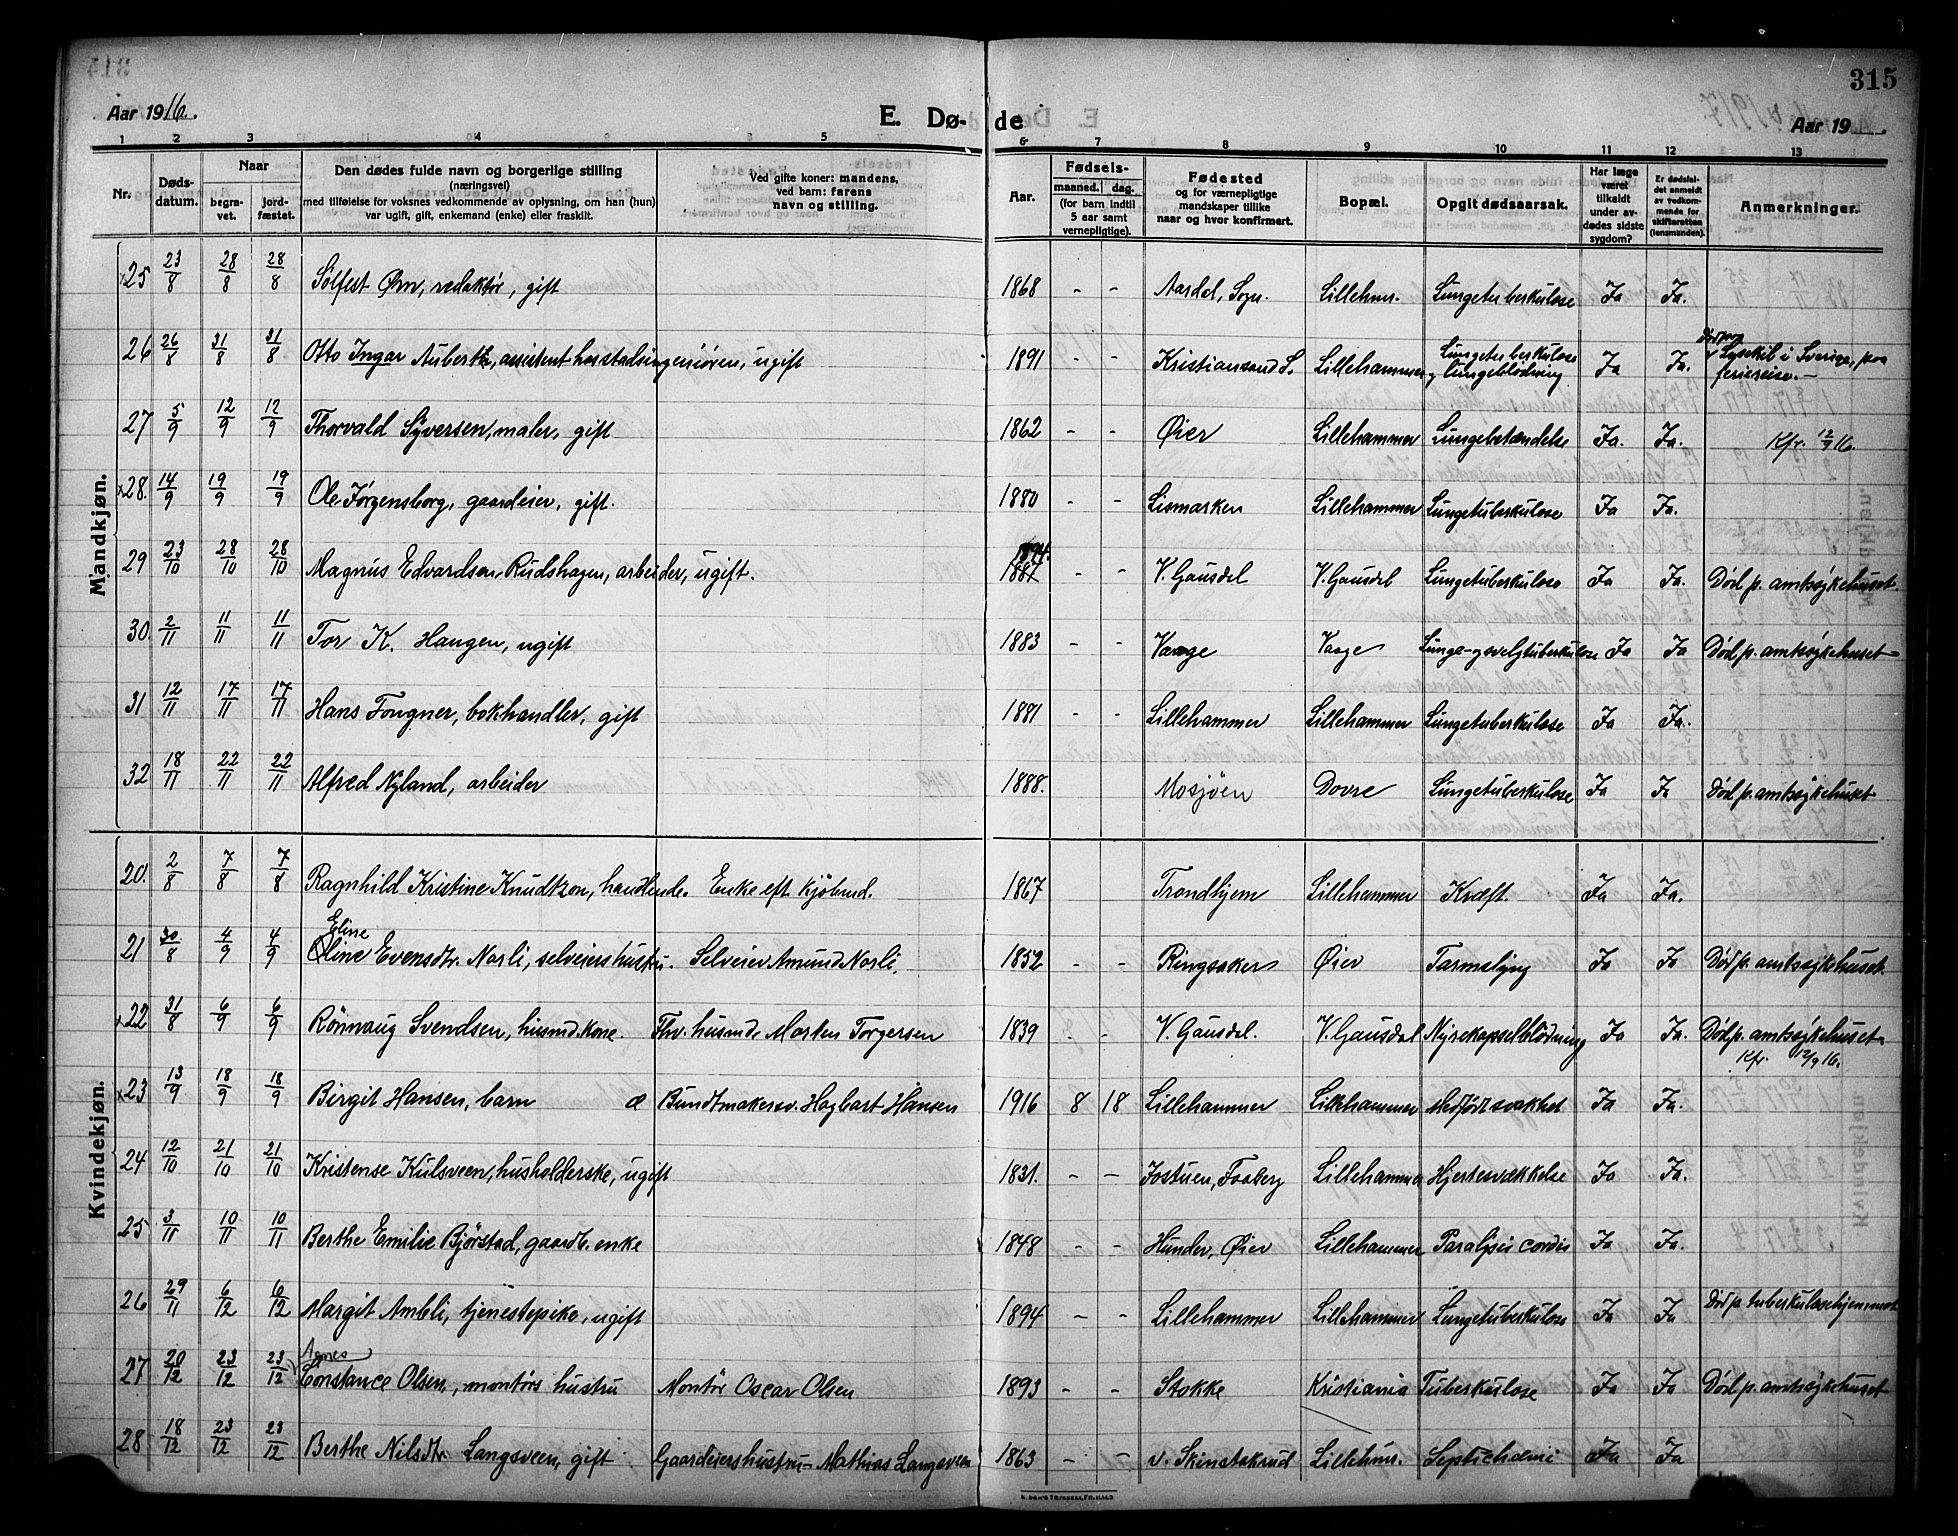 315
Aar 1916. E. Dø- de Aar 19
1 2 3 4 5 6 7 8 9 10 11 12 13
Nr. | Døds-datum. | Naar begra-vet. | jord-fæstet. | Den dødes fulde navn og borgerlige stilling (næringsvei) med tilføielse for voksnes vedkommende av oplysning, om han (hun) var ugift, gift, enkemand (enke) eller fraskilt. | Ved gifte koner: mandens, ved barn: farens navn og stilling. | Aar. | Fødsels- maaned. dag. (for barn indtil 5 aar samt vernepligtige). | Fødested og for værnepligtige mandskaper tillike naar og hvor konfirmert. | Bopæl. | Opgit dødsaarsak. | Har læge været tilkaldt under av-dødes sidste sygdom? | Er dødsfal-det anmeldt av vedkom-mende for skifteretten (lensmanden). | Anmerkninger.
Mandkjøn.
×25 23/8 28/8 28/8 Sølfest Ørn, redaktør, gift 1868 - - Aardal, Sogn. Lillehmr. Lungetuberkulose Ja Ja.
26 26/8 31/8 31/8 Otto Ingar Aubert, assistent hos stadsingeniøren, ugift 1891 - - Kristianssund S. Lillehammer Lungetuberkulose og lungeblødning Ja Ja. Død paa Lysekil i Sverige, paa feriereise. –
27 5/9 12/9 12/9 Thorvald Syversen, maler, gift 1862 - - Øier Lillehammer Lungebetændelse Ja. Ja. Kfr. 12/9 16.
×28. 14/9 19/9 19/9 Ole Jørgensborg, gaardeier, gift. 1880 - - Lismarken Lillehammer Lungetuberkulose Ja Ja.
29 23/10 28/10 28/10 Magnus Edvardsen Rudshagen, arbeider, ugift. 1894. 1881 - - V. Gausdal V. Gausdal Lungetuberkulose Ja Ja. Død p. amtssykehuset.
30. 2/11 11/11 11/11 Tor K. Haugen, ugift 1883 - - Vaage Vaage Lunge- og svelgtuberkulose Ja Ja Død p. amtssykehuset
31 12/11 17/11 17/11 Hans Fougner, bokhandler, gift 1881 - - Lillehammer Lillehammer Lungetuberkulose Ja Ja.
32 18/11 22/11 22/11 Alfred Nyland, arbeider 1888. Mosjøen Dovre Lungetuberkulose Ja Ja Død p. amtssykehuset
Kvindekjøn.
20. 2/8 7/8 7/8 Ragnhild Kristine Knudtzon, handlende. Enke eft. kjøbmd. 1867 Trondhjem Lillehammer Kræft. Ja Ja.
Eline
21 30/8 4/9 4/9 Oline Evensdtr. Norli, selveiershustru. Selveier Amund Norli. 1852 - - Ringsaker Øier Tarmslyng Ja Ja Død p. amtssykehuset.
×22 31/8 6/9 6/9 Rönnaug Svendsen, husmd. kone. Fhv. husmd. Morten Torgersen 1839 - - V. Gausdal. V. Gausdal Nyrekapselblödning Ja Ja. Død p. amtssykehuset
Kfr. 12/9 16.
×23 13/9 18/9 18/9 Birgit Hansen, barn æ Bundtmakersv. Hagbart Hansen 1916 8 18 Lillehammer Lillehammer Medfødt svakhet Ja Ja.
24 12/10 21/10 21/10 Kristense Kulsveen, husholderske, ugift 1831. - - Jostuen, Faaberg Lillehammer Hjertesvækkelse Ja Ja.
25 3/11 10/11 10/11 Berthe Emilie Bjørstad, gaardb. enke 1848 - - Hunder, Øier Lillehammer Paralysis cordis Ja Ja.
26 29/11 6/12 6/12 Margit Ambli, tjenestepike, ugift 1894 - - Lillehammer Lillehammer Lungetuberkulose Ja Ja Død p. tuberkulosehjemmet
Agnes
27 20/12 23/12 23/12 Constance Olsen, montørs hustru Montör Oscar Olsen 1893 - - Stokke Kristiania Tuberkulose Ja Ja Død p. amtssykehuset
28 18/12 23/12 23/12 Berthe Nilsdtr Langsveen, gift Gaardeiershustru – Mathias Langsveen 1863 - - v. Skinstakrud Lillehmr. Septichæmi Ja Ja